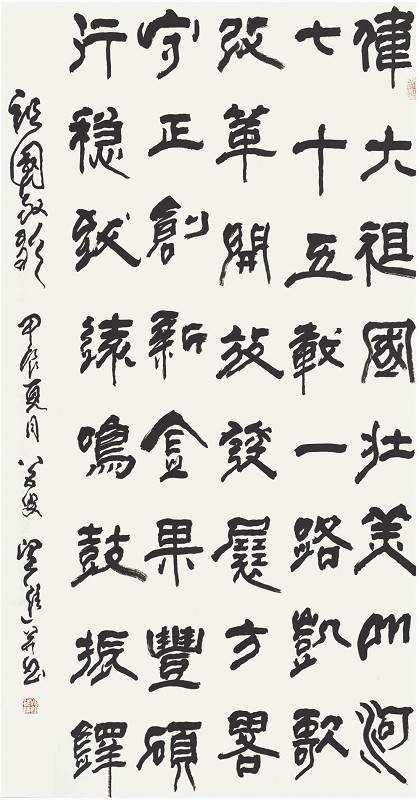 偉大祖國壯美山河
七十五載一路凱歌
改革開放發展方畧
守正創新金果豐碩
行穩致遠鳴鼓振鐸
祖國 甲辰夏月 八 叟